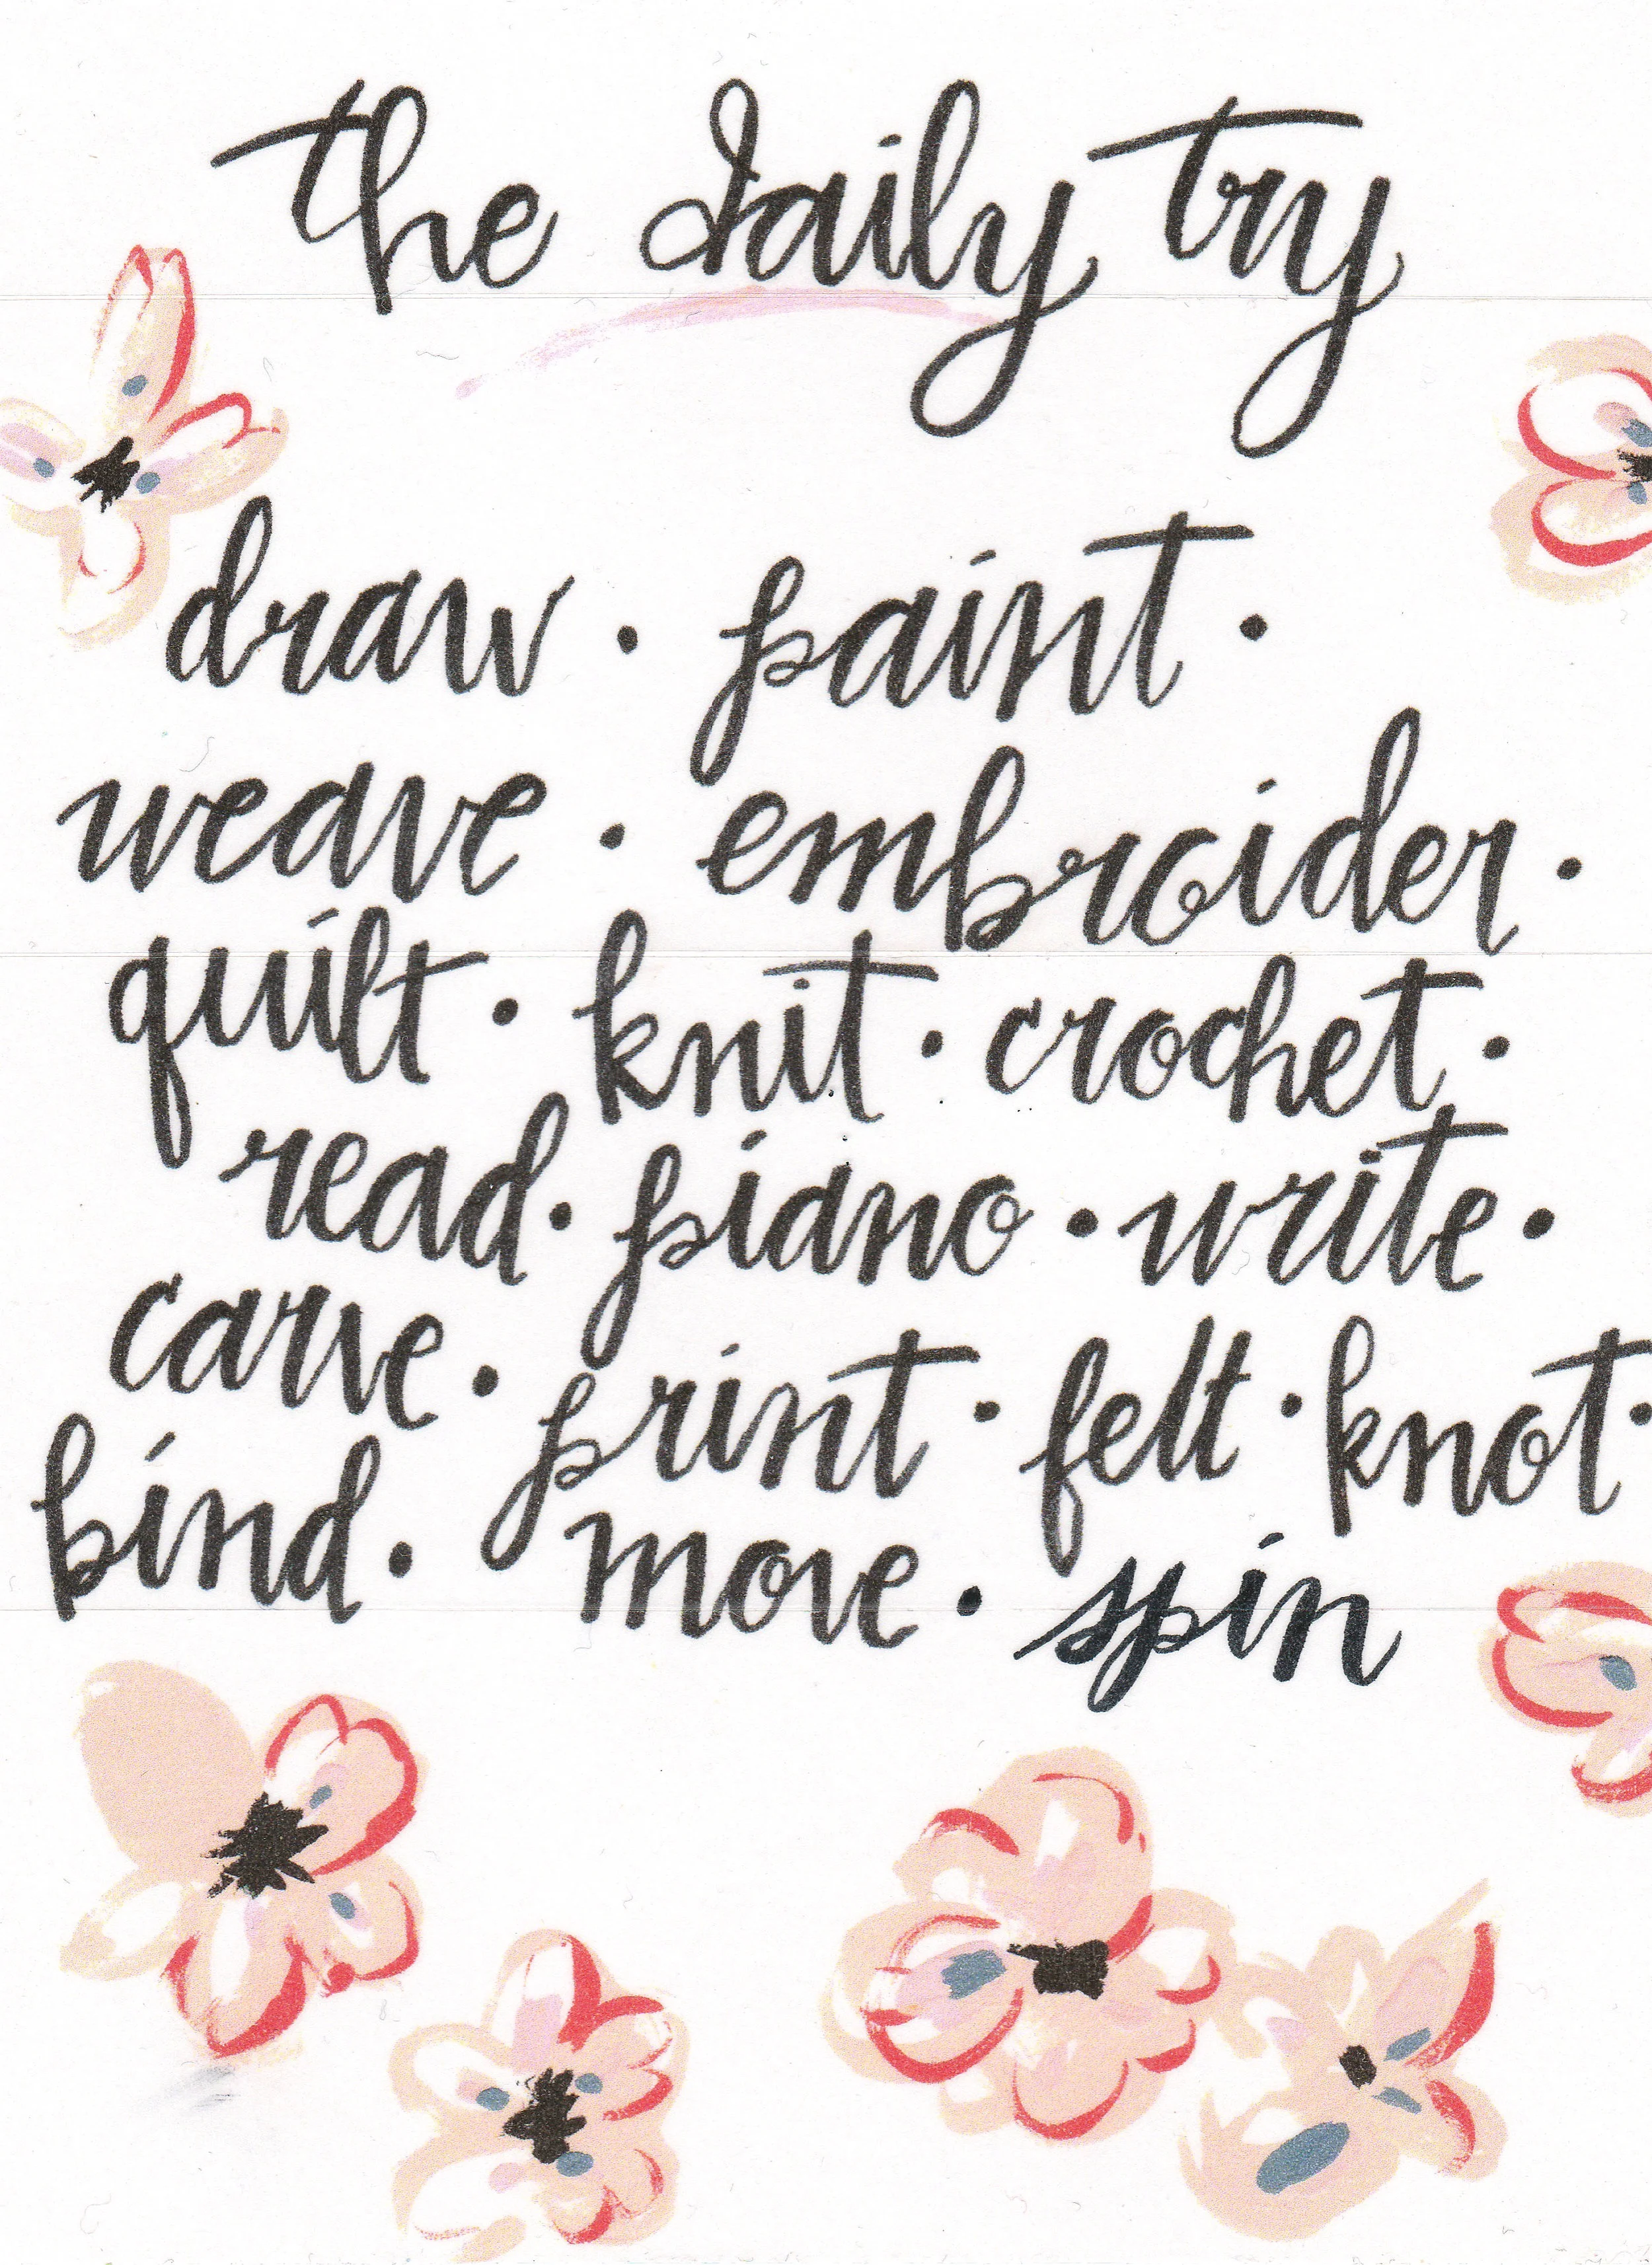 the daily try
draw · paint ·
weave · embroider ·
quilt · knit · crochet ·
read · piano · write ·
carve · print · felt · knot ·
bind · move · spin